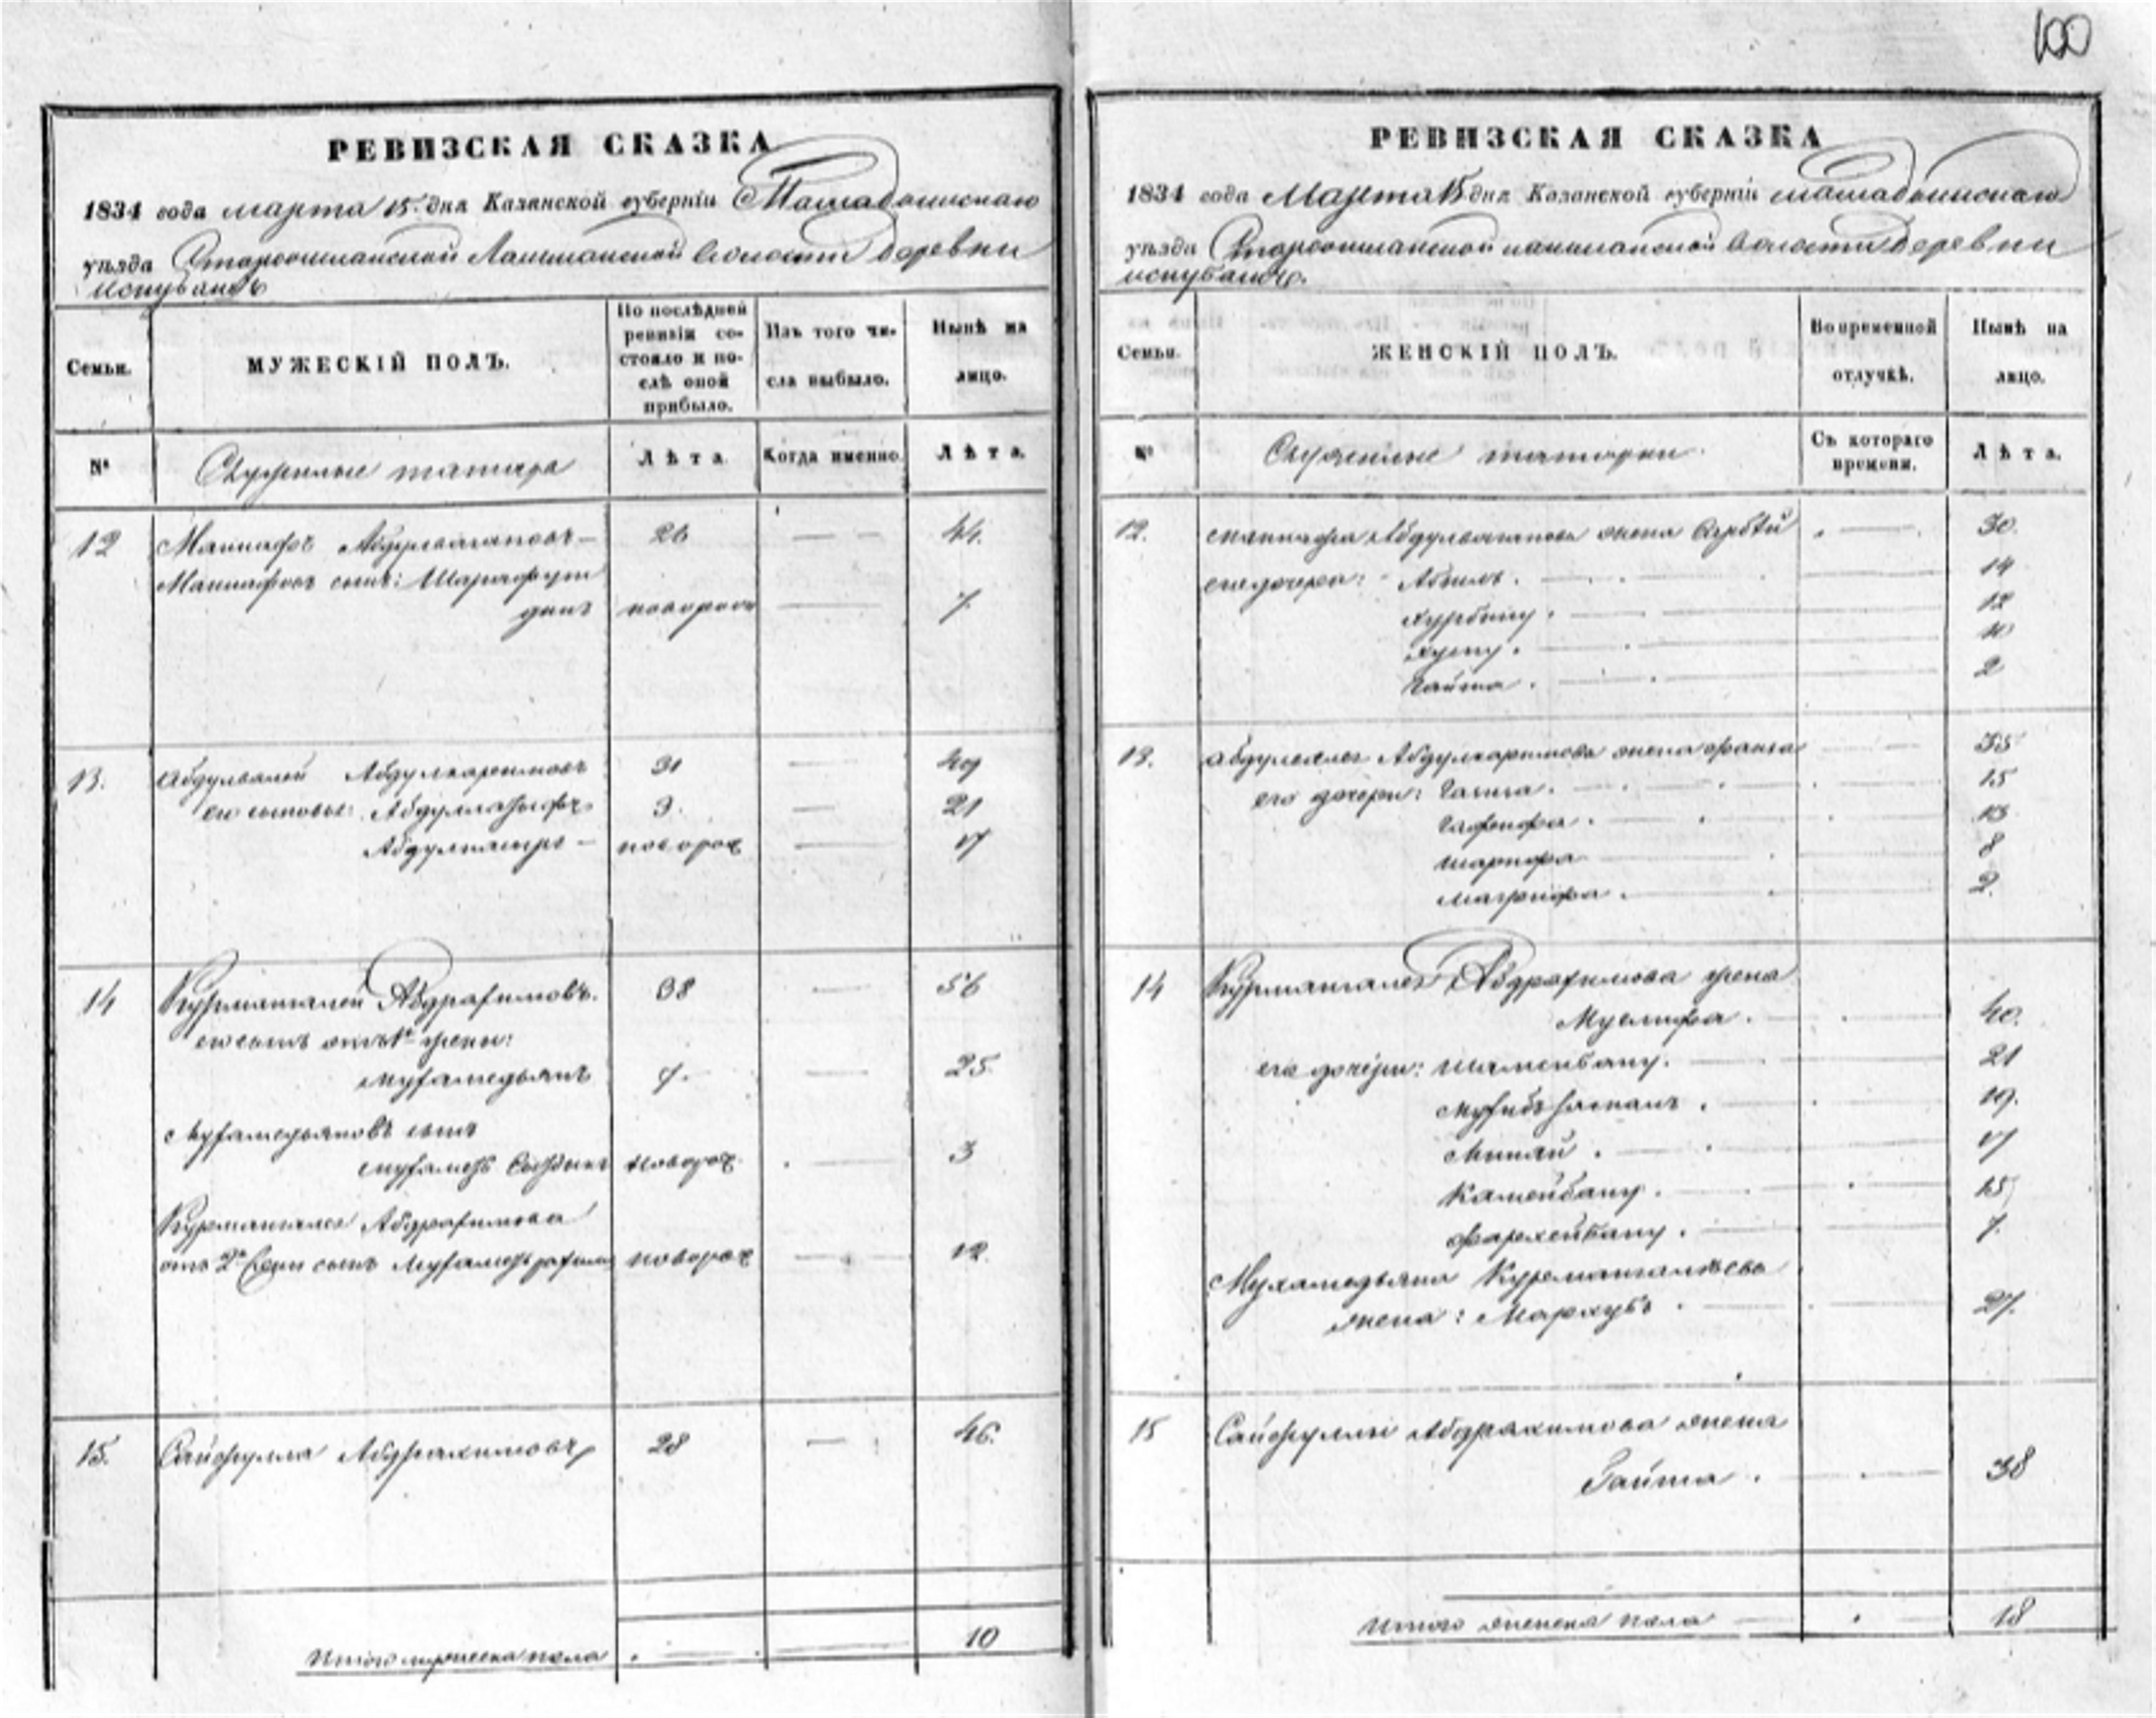 100
РЕВИЗСКАЯ СКАЗКА
1834 года марта 15 дня Казанской губерніи Мамадышскаго
уѣзда Староошланской Лашманской волости деревни
РЕВИЗСКАЯ СКАЗКА
1834 года Марта 15 дня Казанской губерніи мамадышскаго
уѣзда Староошланской лашманской волости деревни
Семьи.
МУЖЕСКІЙ ПОЛЪ.
По послѣдней
ревизіи со-
стояло и по-
слѣ оной
прибыло.
Изъ того чи-
сла выбыло.
Нынѣ на
лицо.
№
Служилые татара
Лѣта
Когда именно
Лѣта.
12 Маннафъ Абдулвагаповъ 26 44.
Маннафовъ сынъ: Шарафут
динъ новорож 7
13. Абдулвалей Абдулкаримовъ 31 49
его сыновья: 3. 21
новорож 17
14 Курмангалей Абдрахимовъ. 38 56
его сынъ отъ 1й жены:
мухамедьянъ 7. 25
Мухамедьяновъ сынъ
новорож 3
Курмангалея Абдрахимова
отъ 2й жены сынъ Мухаметрахимъ новорож 12.
15. Сайфулла Абдрахимовъ 28 46.
Итого мужеска пола 10
Семьи.
ЖЕНСКІЙ ПОЛЪ.
Во временной
отлучкѣ.
Нынѣ на
лицо.
№
Служилые татарки
Съ котораго
времени.
Лѣта.
12. Маннафа Абдулвагапова жена 30.
его дочери: 14
12
10
Гайша. 2
13. Абдулвалея Абдулкаримова жена 35
его дочери: 15
Гафифа. 13
шарифа 8
магрифа. 2.
14 Курмангалея Абдрахимова жена
Муслифа. 40.
его дочери: шамсибану. 21
19.
17
Камейбану. 15
фархейбану. 7.
Мухамедьяна Курмангалѣева
жена: 27.
15 Сайфуллы Абдрахимова жена
Гайша. 38
Итого женска пола 18